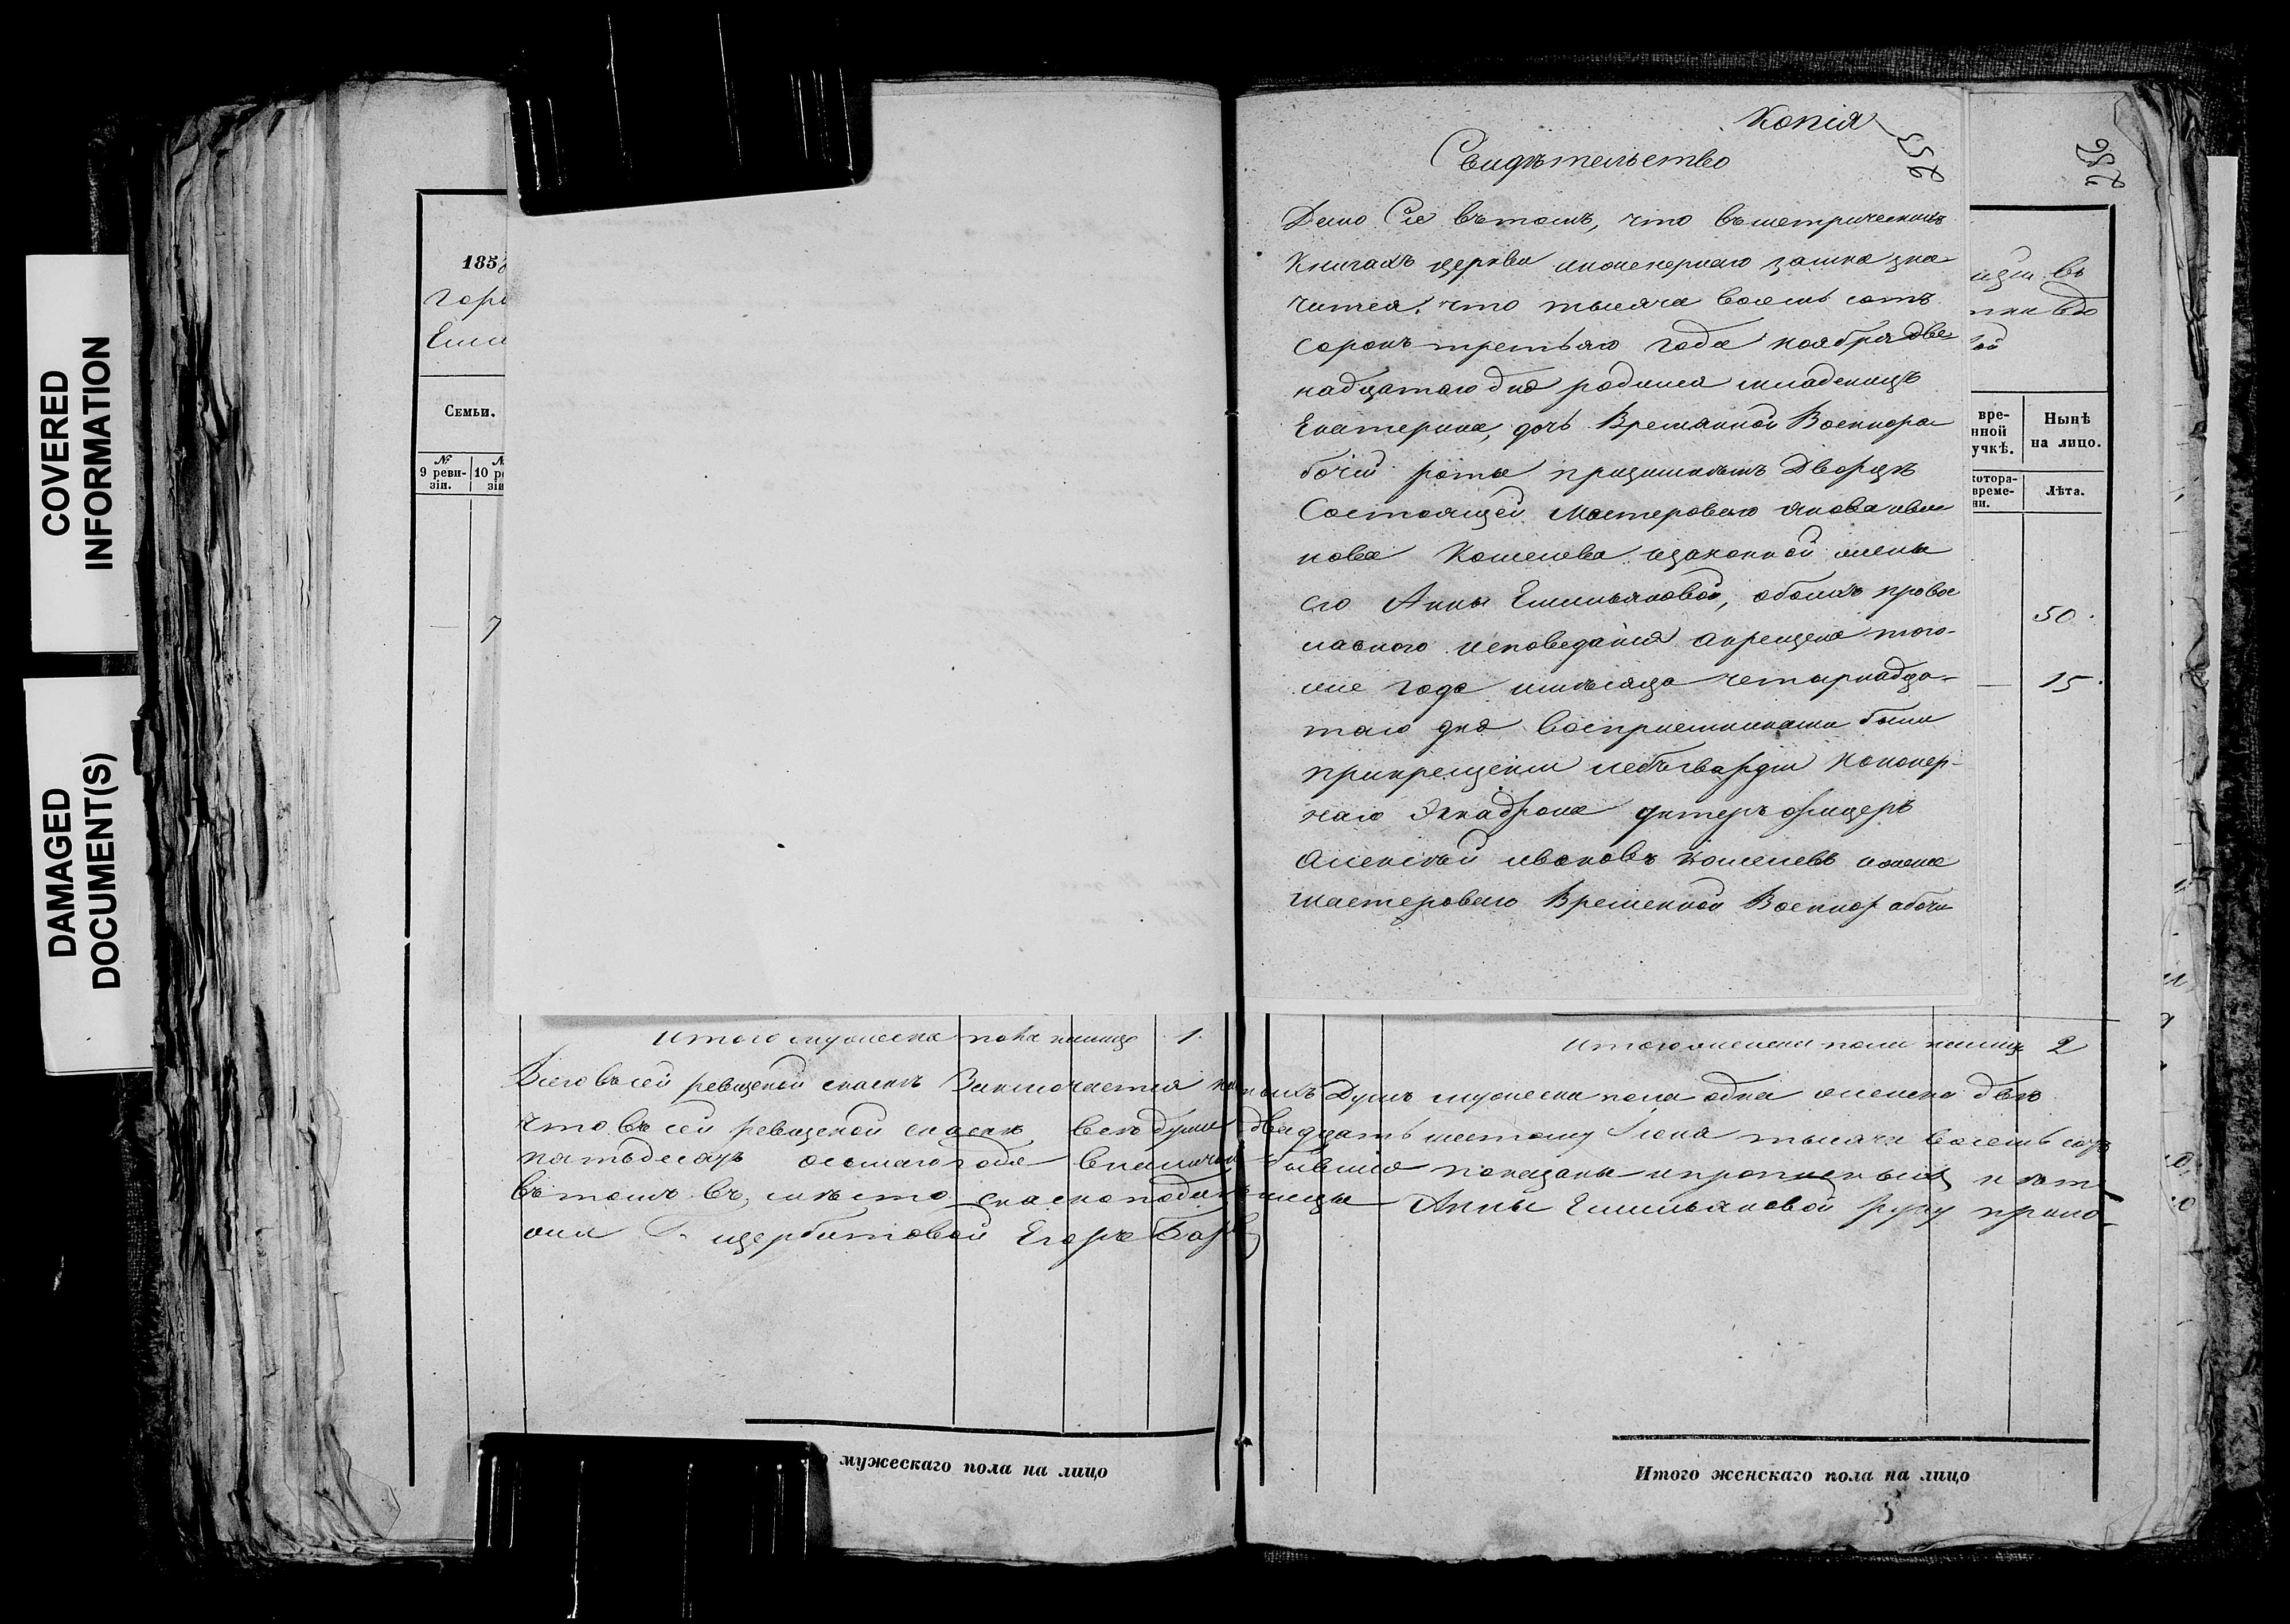 COVERED
INFORMATION
DAMAGED
DOCUMENT(S)
185
Семьи.
№
9 реви-
зіи.
10 ре
зіи
7
Копія
Свидѣтельство
257
256
Дано Сіе въ томъ, что въ метрическихъ
Книгахъ церкви инженернаго замка зна-
чится, что тысяча восемь сотъ
сорокъ третьяго года ноября две-
надцатаго дня родился младенецъ
Екатерина, дочь Временной Военнора-
бочей роты при дворцѣ
Состоящей Мастероваго Якова Ива-
нова Кошелева и законной жены
его Анны Емельяновой, обоихъ право
славнаго исповедания а крещена того-
же года и мѣсяца четырнадца-
таго дня Восприемниками были
при крещении лейбъ гвардіи Піонер-
наго Эскадрона унтеръ офицеръ
Алексѣй Ивановъ Кошелевъ и жена
мастероваго Временной Военнорабочи
вре-
нной
учкѣ.
Нынѣ
на лицо.
котора-
време-
ни.
Лѣта.
50.
— 15.
Итого мужеска пола налицо 1.
Итого женска пола налицо 2
Всего въ сей ревизской сказкѣ Заключается налицо Душъ мужеска пола одна женска двѣ
что въ сей ревизской сказкѣ всѣ души двадцать шестому Іюня тысяча восемь сотъ
пятьдесятъ осьмаго года в наличіи бывшія показаны и прописныхъ нѣтъ
въ томъ въ мѣсто сказкоподательницы Анны Емельяновой руку прило-
жил Егоръ
мужескаго пола на лицо
Итого женскаго пола на лицо